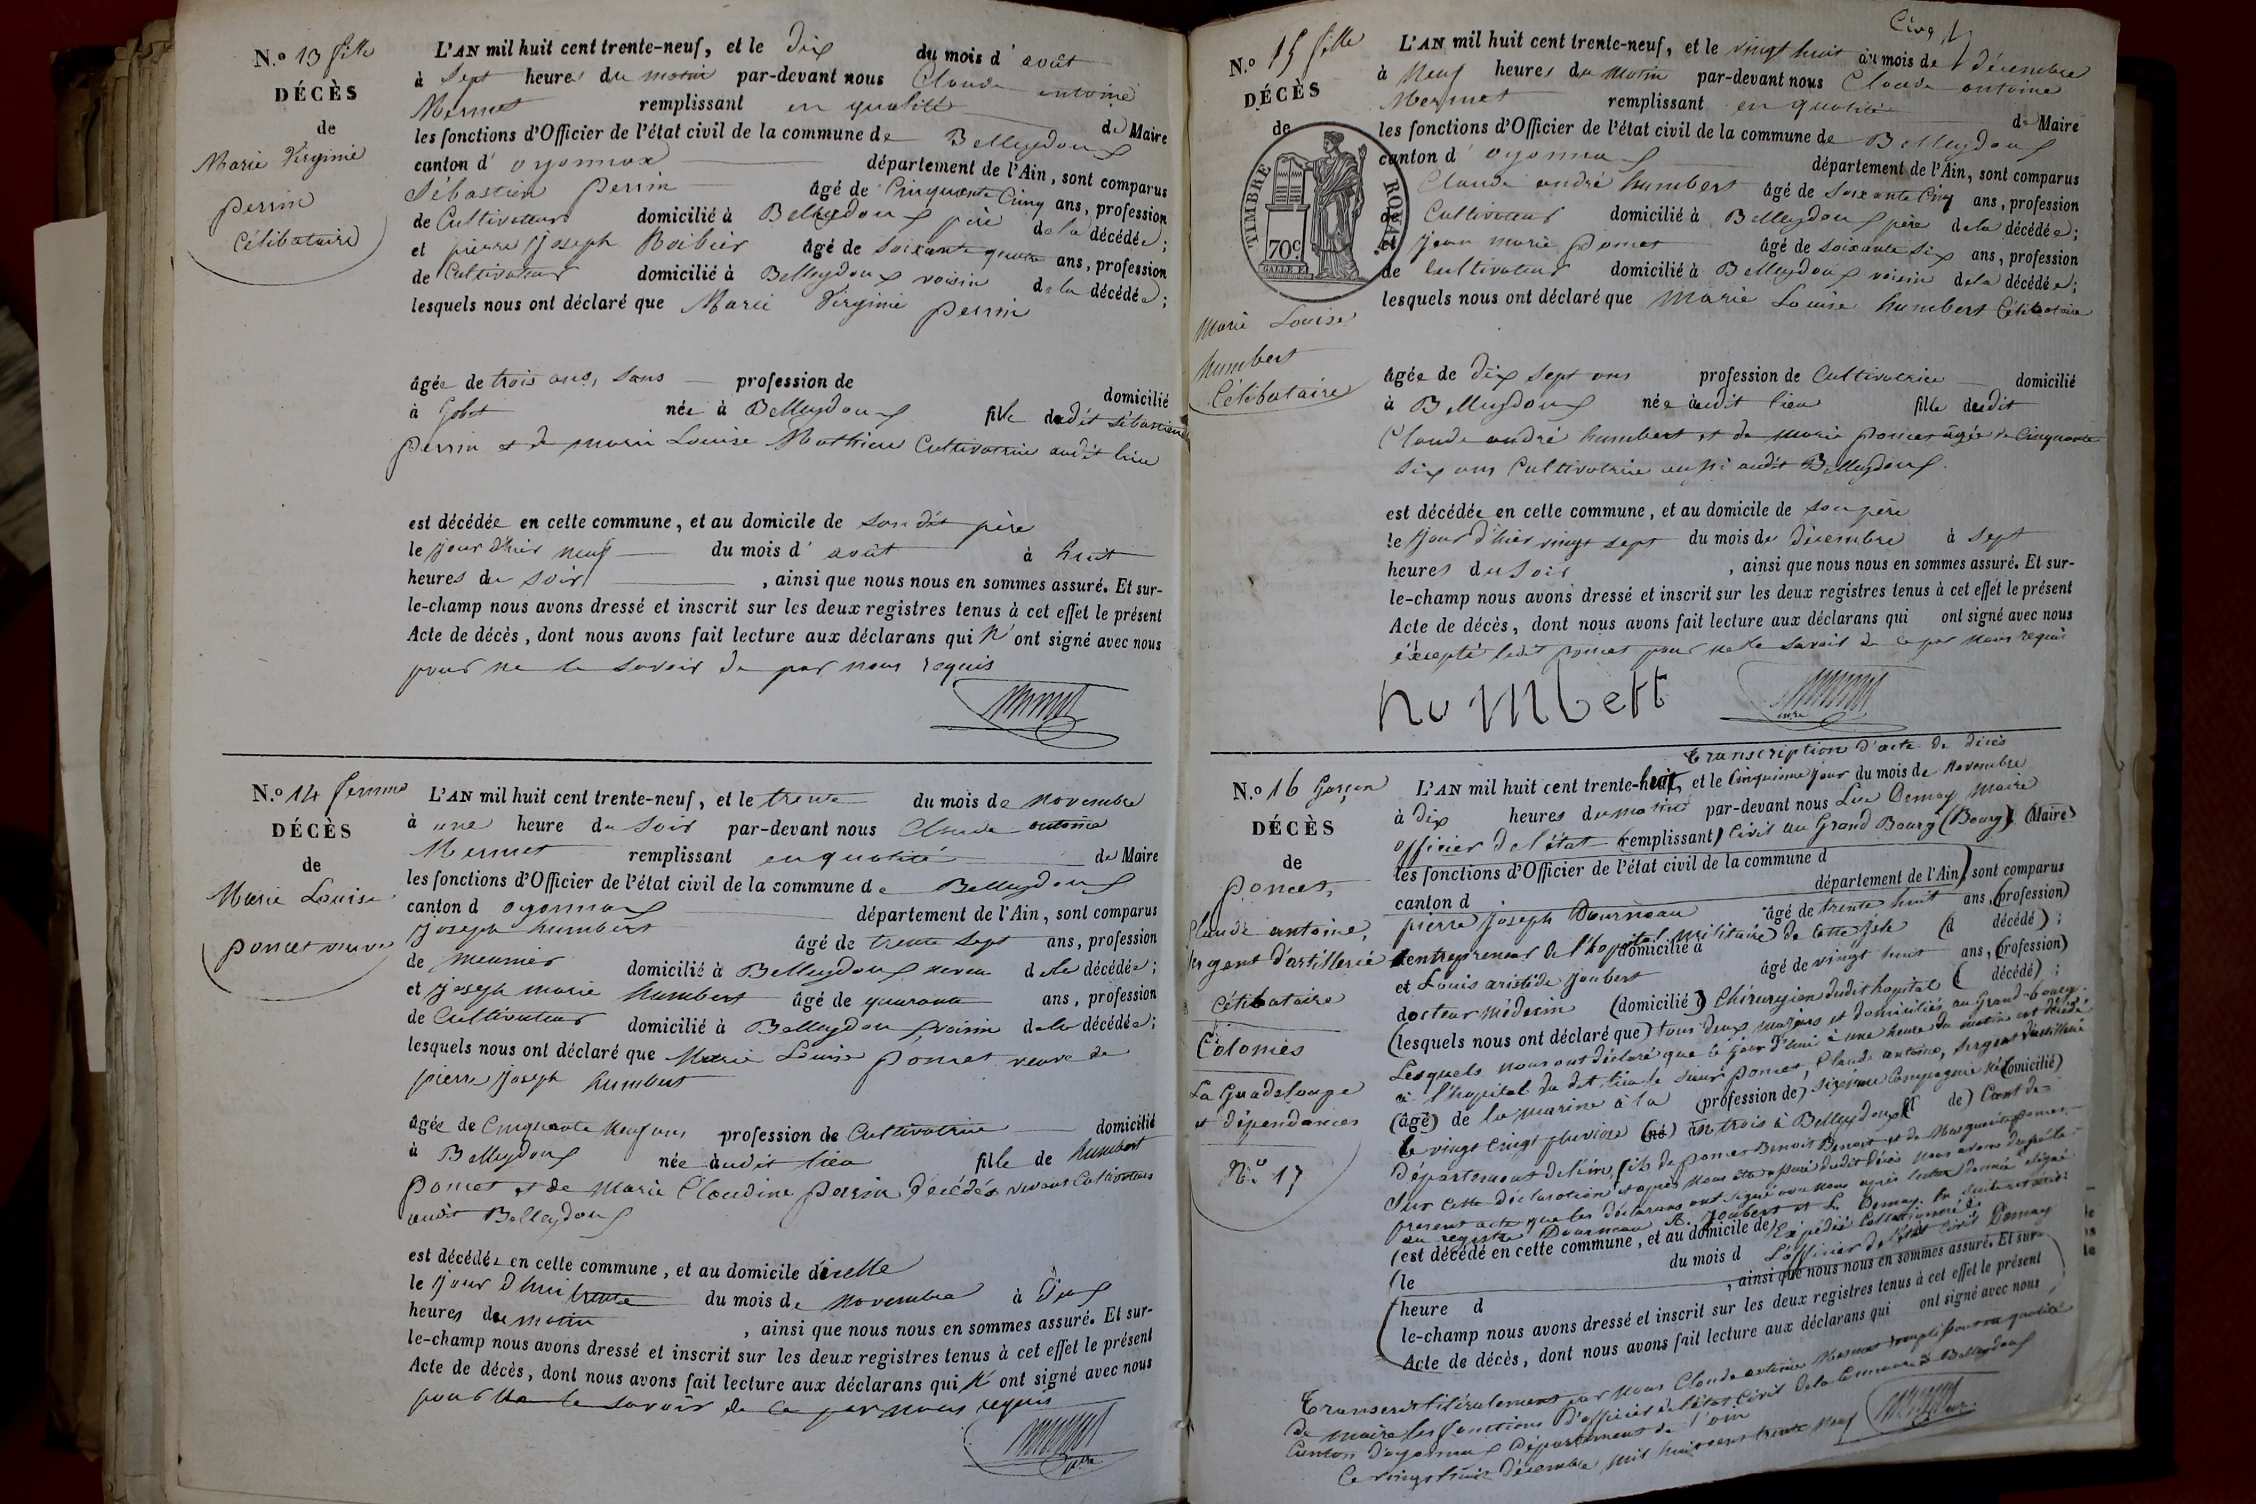 N.o 13 fille
DÉCÈS
de
Marie Virginie
perrin
Célibataire
L'AN mil huit cent trente-neuf, et le dix du mois d'août
à Sept heures du matin par-devant nous Claude antoine
Mermet remplissant en qualité de Maire
les fonctions d'Officier de l'état civil de la commune de Belleydoux
canton d'oyonnax département de l'Ain, sont comparus
Sébastien perrin âgé de Cinquante Cinq ans, profession
de Cultivateur domicilié à Belleydoux père de la décédée;
et pierre joseph Robier âgé de soixante quatre ans, profession
de Cultivateur domicilié à Belleydoux voisin de la décédée;
lesquels nous ont déclaré que Marie Virginie perrin
âgée de trois ans, sans profession de domicilié
à Gobet née à Belleydoux fille dudit Sébastien
perrin et de marie Louise Mathieu Cultivatrice audit lieu
est décédée en cette commune, et au domicile de son dit père
le jour d'hier neuf du mois d'août à huit
heures du soir, ainsi que nous nous en sommes assuré. Et sur-
le-champ nous avons dressé et inscrit sur les deux registres tenus à cet effet le présent
Acte de décès, dont nous avons fait lecture aux déclarans qui n'ont signé avec nous
pour ne le savoir de par nous requis
Mermet
N.o 14 femme
DÉCÈS
de
Marie Louise
poncet veuve
L'AN mil huit cent trente-neuf, et le trente du mois de novembre
à une heure du soir par-devant nous Claude antoine
Mermet remplissant en qualité de Maire
les fonctions d'Officier de l'état civil de la commune de Belleydoux
canton d oyonnax département de l'Ain, sont comparus
joseph humbert âgé de trente sept ans, profession
de meunier domicilié à Belleydoux neveu de la décédée;
et joseph marie humbert âgé de quarante ans, profession
de Cultivateur domicilié à Belleydoux voisin de la décédée;
lesquels nous ont déclaré que Marie Louise poncet veuve de
pierre joseph humbert
âgée de Cinquante neuf ans profession de Cultivatrice domicilié
à Belleydoux née audit lieu fille de humbert
poncet et de Marie Claudine perrin décédés vivant Cultivateurs
audit Belleydoux
est décédée en cette commune, et au domicile d'icelle
le jour d'hui trente du mois de novembre à dix
heures du matin, ainsi que nous nous en sommes assuré. Et sur-
le-champ nous avons dressé et inscrit sur les deux registres tenus à cet effet le présent
Acte de décès, dont nous avons fait lecture aux déclarans qui n'ont signé avec nous
pour ne le savoir de ce par nous requis
Mermet
N.o 15 fille
DÉCÈS
de
TIMBRE ROYAL
70c
Marie Louise
humbert
Célibataire
L'AN mil huit cent trente-neuf, et le vingt huit du mois de décembre
à Neuf heures du Matin par-devant nous Claude antoine
Mermet remplissant en qualité de Maire
les fonctions d'Officier de l'état civil de la commune de Belleydoux
canton d'oyonnax département de l'Ain, sont comparus
Claude andré humbert âgé de soixante Cinq ans, profession
de Cultivateur domicilié à Belleydoux père de la décédée;
et jean marie poncet âgé de soixante six ans, profession
de Cultivateur domicilié à Belleydoux voisin de la décédée;
lesquels nous ont déclaré que Marie Louise humbert Célibataire
âgée de dix sept ans profession de Cultivatrice domicilié
à Belleydoux née audit lieu fille dudit
Claude andré humbert et de Marie poncet âgée de Cinquante
six ans Cultivatrice aussi audit Belleydoux
est décédée en cette commune, et au domicile de son père
le jour d'hier vingt sept du mois de décembre à sept
heures du soir, ainsi que nous nous en sommes assuré. Et sur-
le-champ nous avons dressé et inscrit sur les deux registres tenus à cet effet le présent
Acte de décès, dont nous avons fait lecture aux déclarans qui ont signé avec nous
éxcepté ledit poncet pour ne le savoir de ce par nous requis
humbert
Mermet
N.o 16 Garçon
DÉCÈS
de
poncet,
Claude antoine,
sergent d'artillerie
Célibataire
Colonies
La Guadeloupe
et dépendances
N.o 17
Transcription d'acte de décès
L'AN mil huit cent trente-huit, et le Cinquième jour du mois de Novembre
à dix heures du matin par-devant nous Luc Demay Maire
officier de l'état (remplissant) Civil au Grand Bourg (Bourg) (Maire)
les fonctions d'Officier de l'état civil de la commune d
canton d département de l'Ain) sont comparus
pierre joseph Dourneau âgé de trente huit ans, (profession)
entrepreneur de l'hopital militaire de cette isle domicilié à (d décédé);
et Louis aristide Joubert âgé de vingt huit ans, (profession)
docteur médecin (domicilié) Chirurgien dudit hopital (décédé);
(lesquels nous ont déclaré que) tous deux majeurs et domiciliés au Grand-bourg.
Lesquels nous ont déclaré que le jour d'hui à une heure du matin est décédé
à l'hopital du dit lieu le sieur poncet, Claude antoine, sergent d'artillerie
(âgé) de la marine à la (profession de) sixieme Compagnie né (domicilié)
le vingt Cinq pluviose (né) an trois à Belleydoux (de) Cant de
département de l'ain, fils de poncet Benoit et de Marguerite poncet
Sur cette déclaration et après nous être assuré dudit décès nous avons dressé le
présent acte que les déclarans ont signé avec nous après lecture donnée signé
au registre Dourneau A. Joubert et L. Demay.
(est décédé en cette commune, et au domicile de) Expédié Collationné
(le du mois d L'officier de l'état civil Demay
heure d, ainsi que nous nous en sommes assuré. Et sur-
le-champ nous avons dressé et inscrit sur les deux registres tenus à cet effet le présent
Acte de décès, dont nous avons fait lecture aux déclarans qui ont signé avec nous
Transcrit litéralement par nous Claude antoine Mermet remplissant en qualité
de maire les fonctions d'officier de l'état Civil de la Commune de Belleydoux
Canton d'oyonnax Département de l'ain
Ce vingt huit décembre mil huit cent trente neuf
Mermet